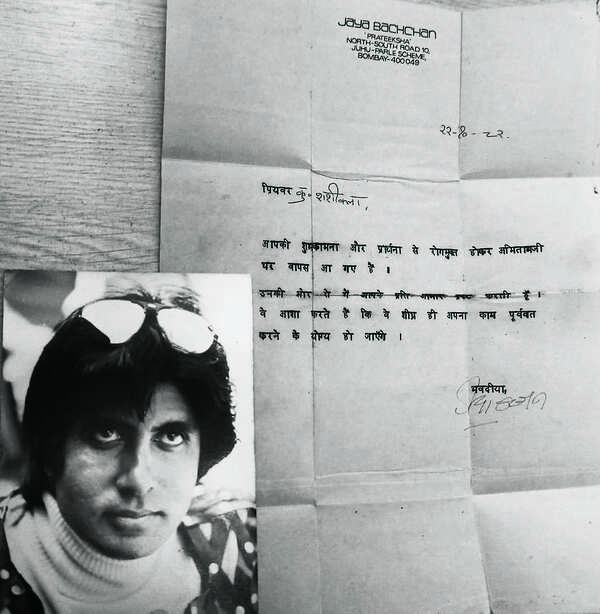 Jaya Bachchan
'PRATEEKSHA'
NORTH-SOUTH ROAD 10,
JUHU-PARLE SCHEME,
BOMBAY-400 049
२२-१०-८२.
प्रियवर कु० शशीकला,
आपकी शुभकामना और प्रार्थना से रोगमुक्त होकर अमिताभजी
घर वापस आ गए है ।
उनकी ओर से में आपके प्रति आभार प्रकट करती हूँ ।
वे आशा करते हैं कि वे शीघ्र ही अपना काम पूर्ववत
करने के योग्य हो जाएँगे ।
भवदीया,